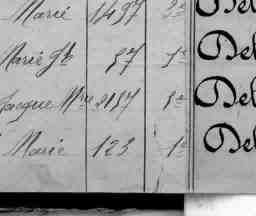 Marie 1497 2e Del
Marie Jh 57 1e Del
Jacque Mie 2157 5e Del
Marie 123 1e Del